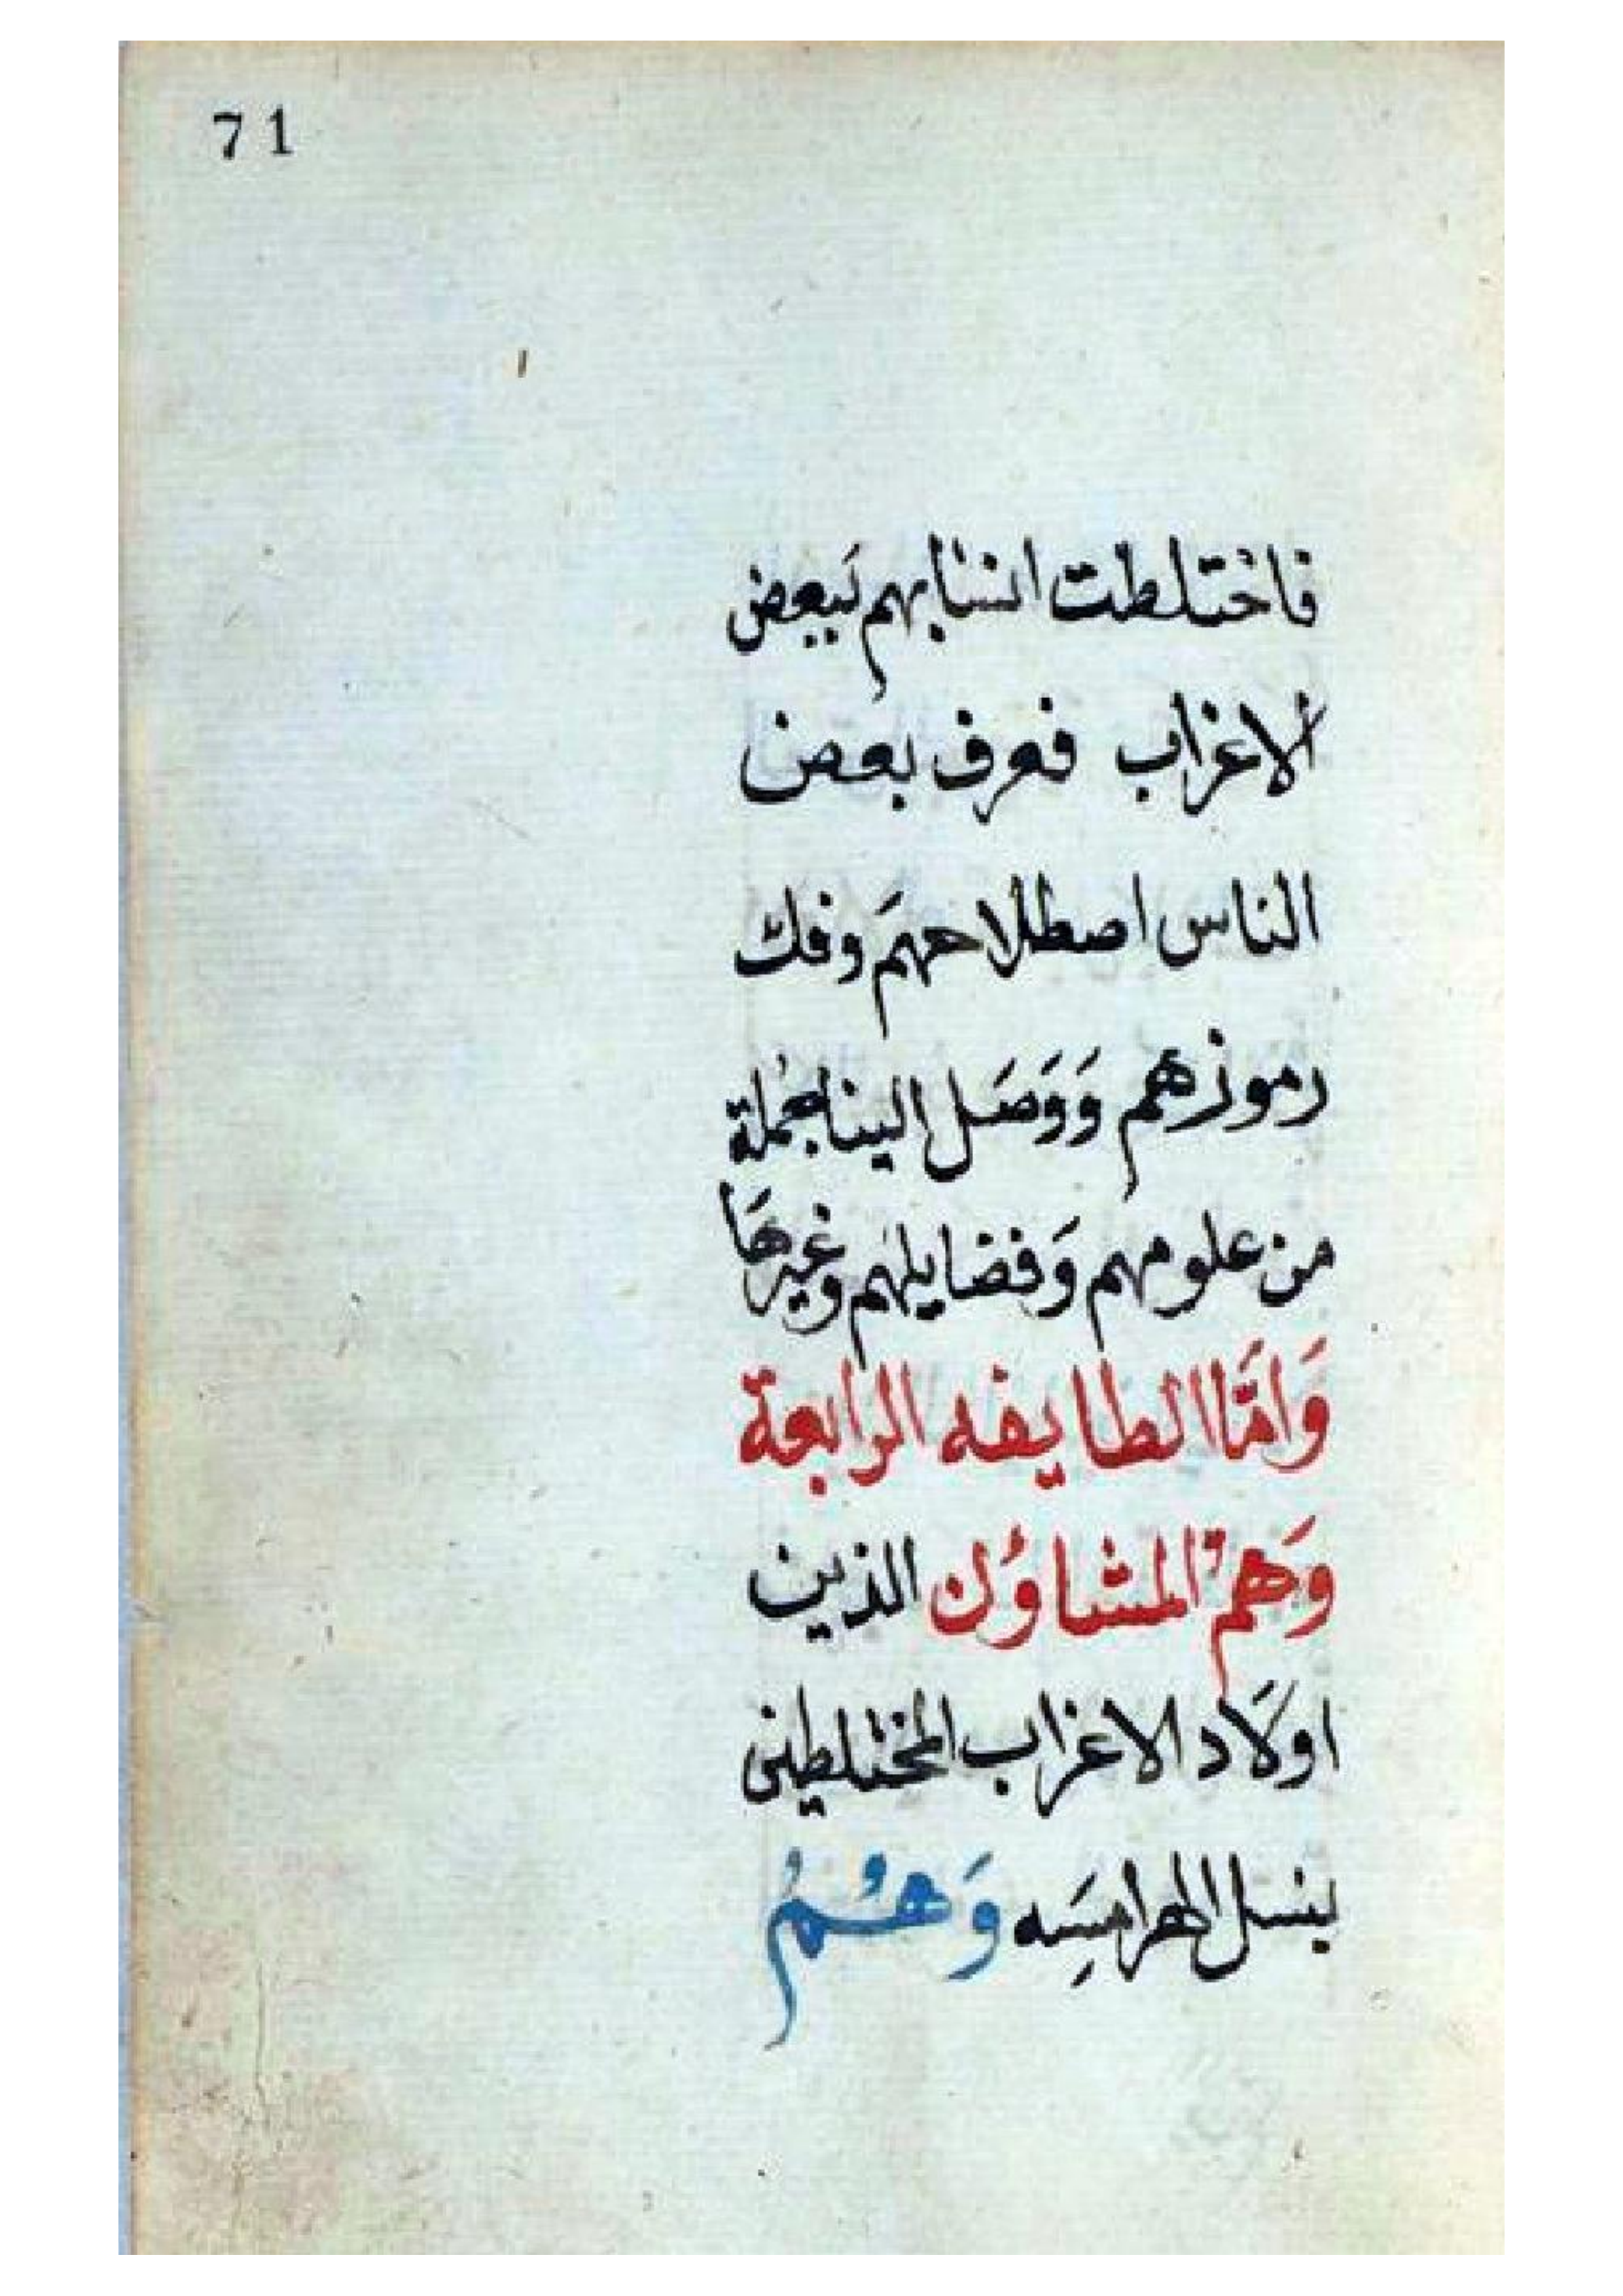 71
فاختلطت انسابهم ببعض
الاغراب فعرف بعض
الناس اصطلاحهمَ وفك
رموزهم وَوَصَل الينا بجملة
من علومهم وَفضايلهم وغيرهَا
وَامَّا الطايفه الرابعة
وَهمْ المشاوُن الذين
اولَاد الاغراب المختلطين
بنسل الهرامسِه وَهُمُ